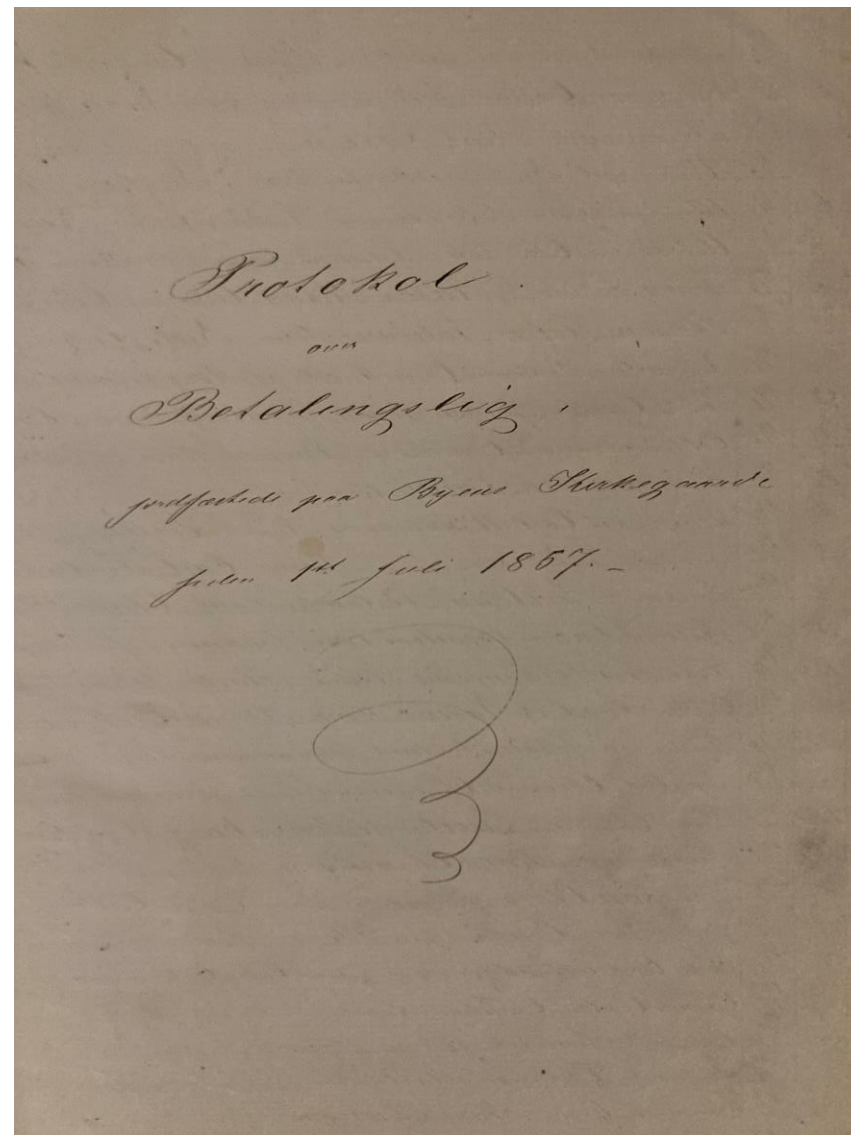 Protokol.
over
Betalingslig,
jordfæstede paa Byens Kirkegaarde
siden 1ste Juli 1867. –